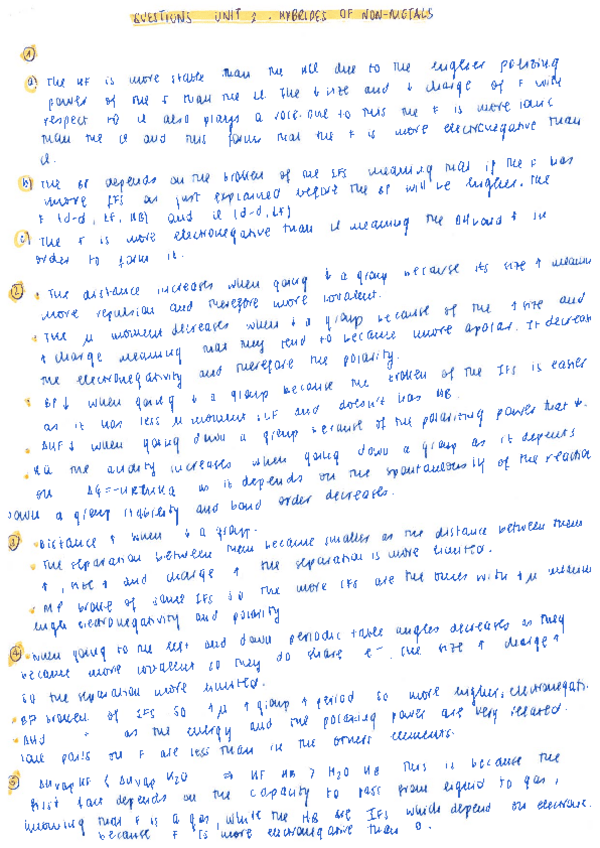 QUESTIONS UNIT 3. HYBRIDES OF NON-METALS
①
a) The HF is more stable than the HCl due to the higher polarizing
power of the F than the Cl. The ↓ size and ↓ charge of F with
respect to Cl also plays a role. Due to this the F is more ionic
than the Cl and this forms that the F is more electronegative than
Cl.
b) The BP depends on the broken of the IFS meaning that if the F has
more IFS as just explained before the BP will be higher. The
F (d-d, LF, HB) and Cl (d-d, LF)
c) The F is more electronegative than Cl meaning the ΔHbond ↑ in
order to form it.
② • The distance increases when going ↓ a group because its size ↑ meaning
more repulsion and therefore more covalent.
• The μ moment decreases when ↓ a group because of the ↑ size and
↑ charge meaning that they tend to because more apolar. It decreas
the electronegativity and therefore the polarity.
• BP ↓ when going ↓ a group because the broken of the IFS is easier
as it has less μ moment, LF and doesn't has HB.
• ΔHF ↓ when going down a group because of the polarizing power that ↓.
• Ka the acidity increases when going down a group as it depents
on ΔG=-nRTlnKa as it depends on the spontaneously of the reactio
down a group stability and bond order decreases.
③ • Distance ↑ when ↓ a group.
• The separation between them because smaller as the distance between them
↑, size ↑ and charge ↑ the separation is more limited.
• MP broke of some IFS so the more IFS are the ones with ↑μ meaning
electronegativity and polarity
④ • When going to the left and down periodic table angles decreases as they
because more covalent so they do share e⁻. The size ↑ charge ↑
so the separation more limited.
• BP broken of IFS so ↑μ ↑ group ↑ period so more higher electronegati.
• ΔHf " as the energy and the polarizing power are very related.
Lone pairs on F are less than in the others elements.
⑤ ΔHvap HF < ΔHvap H₂O ⇒ HF HB > H₂O HB This is because the
first fact depends on the capacity to pass from liquid to gas,
knowing that F is a gas, while the HB are IFS which depend on electrone.
because F is more electronegative than O.